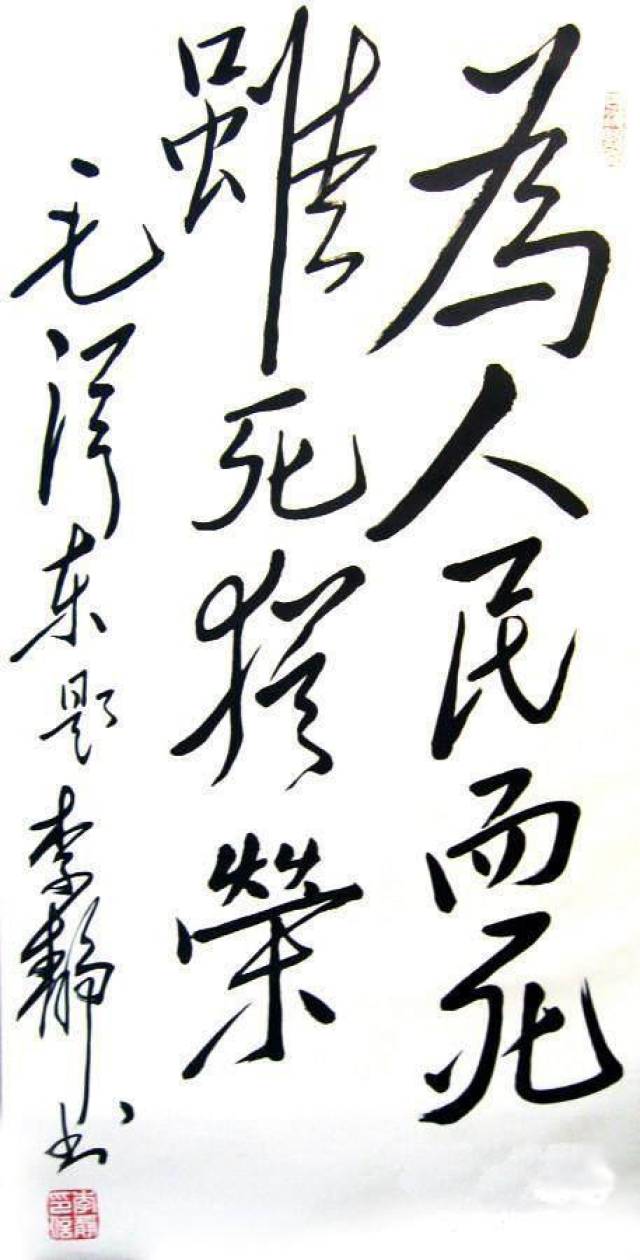 為人民而死
雖死猶榮
毛泽东题李静书